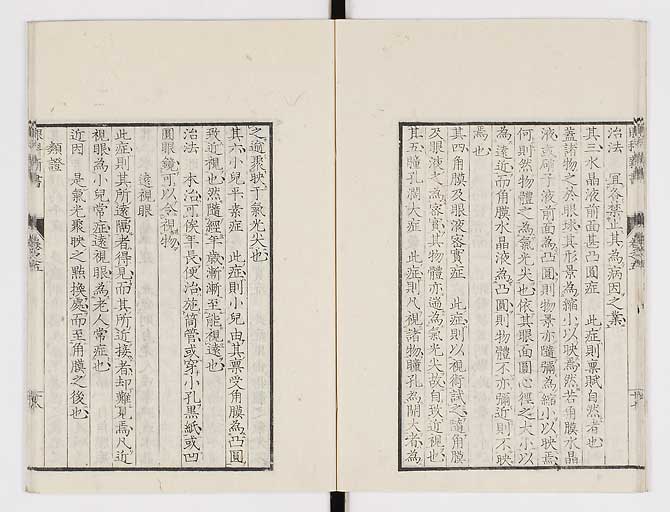 治法 宜各禁止其為病因之業
其三水晶液前面甚凸圓症 此症則稟賦自然者也
蓋諸物之於眼球其形景為縮小以映焉然若角膜水晶
液或硝子液前面為凸圓則物景亦隨彌為縮小以映焉
何則然物體之為氣光尖也依其眼面圓心徑之大小以
為遠近而角膜水晶液為凸圓則物體不亦彌近則不映
焉也
其四角膜及眼液容實症 此症則以視術試之隨角膜
及眼液之為容實其物體亦適為氣光尖故自致近視也
其五瞳孔濶大症 此症則凡視諸物瞳孔為開大者為
之適聚映于氣光尖也
其六小兒平素症 此症則小兒由其稟受角膜為凸圓
致近視也然隨經年歲漸漸至能視遠也
治法 本治可俟年長便治施筒管或穿小孔黑紙或凹
圓眼鏡可以令視物
遠視眼
此症則其所遠隔者得見而其所近接者却難見焉凡近
視眼為小兒常症遠視眼為老人常症也
近因 是氣光聚映之點換處而至角膜之後也
類證